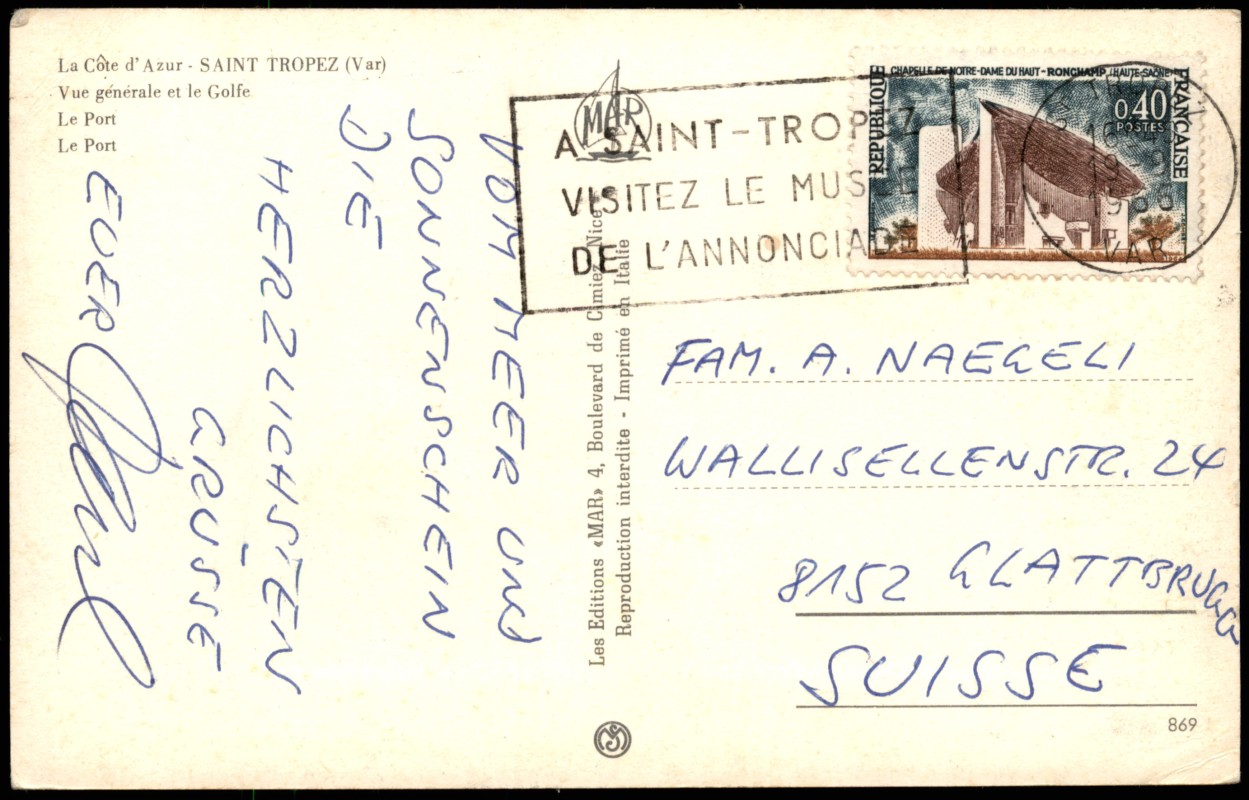 La Côte d'Azur - SAINT TROPEZ (Var)
Vue générale et le Golfe
Le Port
Le Port
MAR
A SAINT-TROPEZ
VISITEZ LE MUSEE
DE L'ANNONCIADE
CHAPELLE DE NOTRE-DAME DU HAUT-RONCHAMP (HAUTE-SAÔNE)
REPUBLIQUE
FRANÇAISE
0,40
POSTES
VAR
VOM MEER UND
SONNENSCHEIN
DIE
HERZLICHSTEN
GRÜSSE
EUER
Les Editions «MAR» 4, Boulevard de Cimiez Nice
Reproduction interdite - Imprimé en Italie
FAM. A. NAEGELI
WALLISELLENSTR. 24
8152 GLATTBRUGG
SUISSE
869